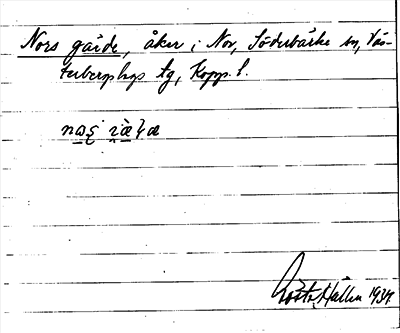 Nors gärde, åker i Nor, Söderbärke sn, Väs-
terbergslags tg, Kopp. l.
Gösta Hallén 1934